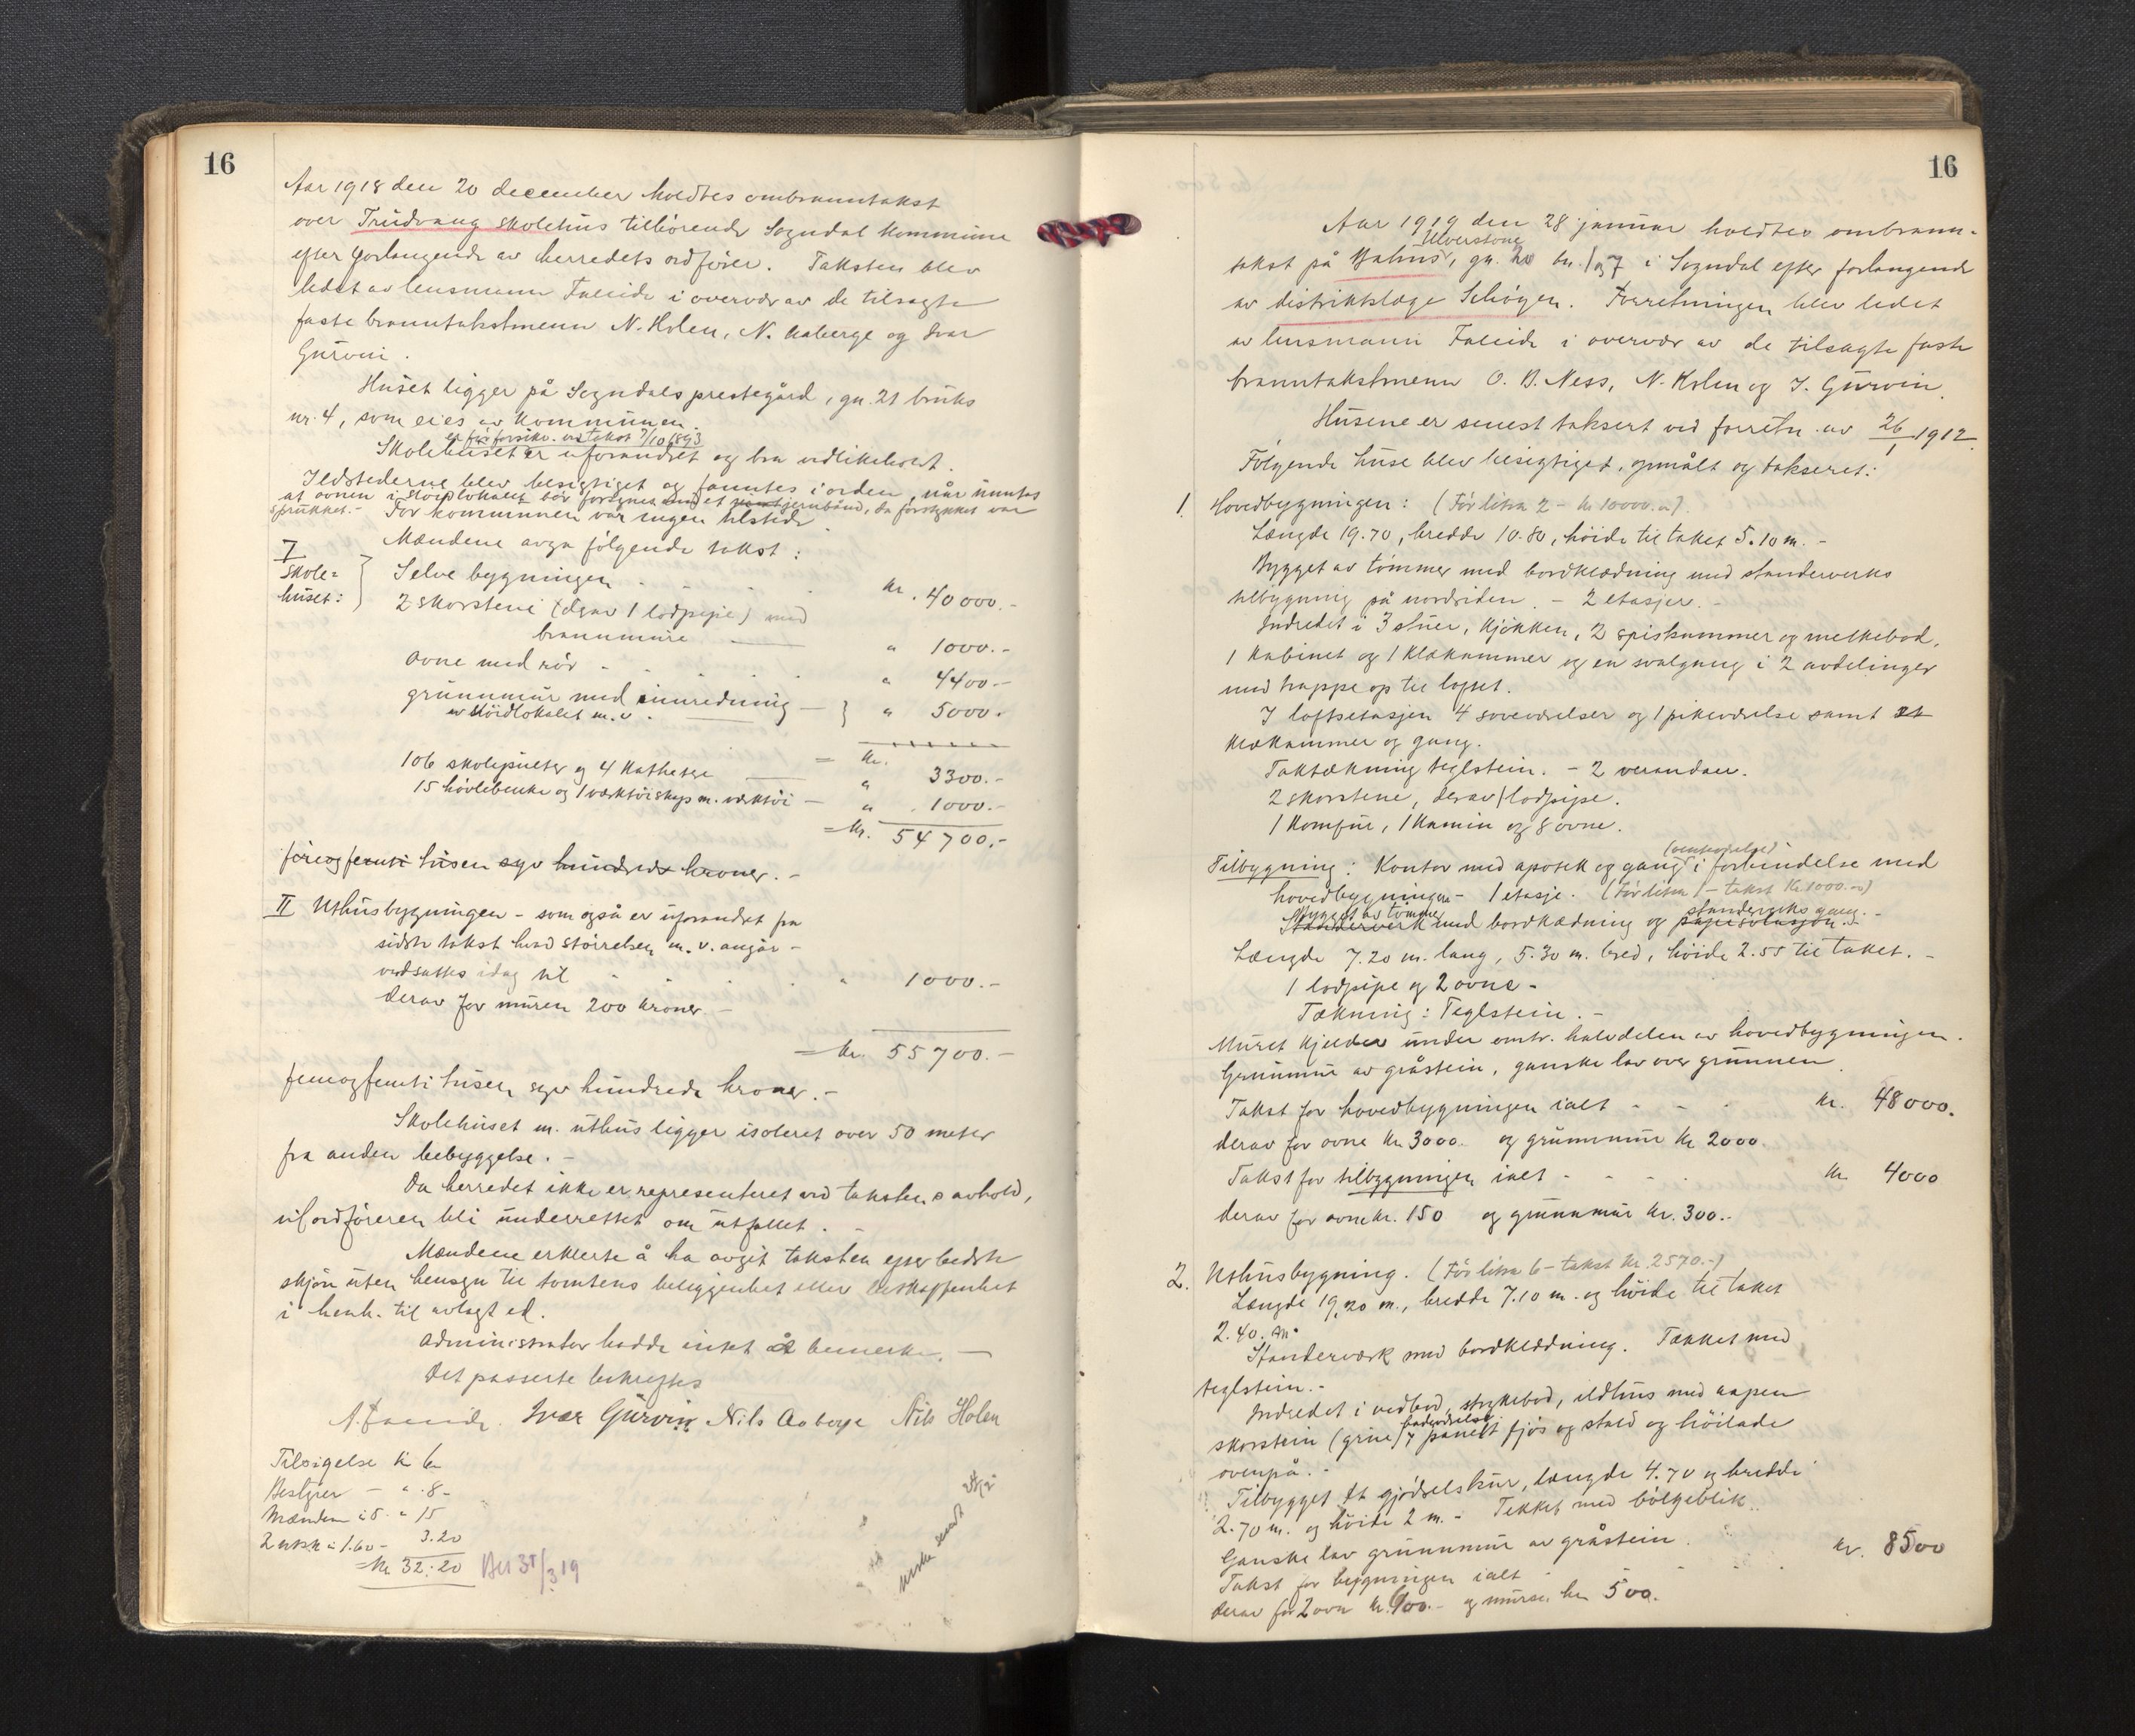 16
Aar 1918 den 20 december holdtes ombranntakst
over Trudvang skolehus tilhørende Sogndal kommune
efter forlangende av herredets ordfører. Taksten blev
ledet av lensmann Faleide i overvær av de tilsagte
faste branntakstmenn N. Holen, N. Aaberge og Ivar
Gurvin.
Huset ligger på Sogndals prestegård, gn. 21 bruks
nr. 4, som eies av kommunen.
er før forsikr. ved takst 7/10 1893
Skolehuset er uforandret og bra vedlikeholdt.
Ildstederne blev besigtiget og fanntes i orden, når unntas
at ovnen i sløidlokalet bør forsynes med et jernbånd, da forstykket var
sprukket. - For kommunen var ingen tilstede
Mændene avga følgende takst:
I
Skole=
huset:
Selve bygningen kr. 40 000.-
2 skorstene (derav 1 lodpipe) med
brannmure " 1000.-
ovne med rør - " 4400.-
grunnmur med innredning - " 5000.
av sløidlokalet m.v.
= kr.
106 skolepulter og 4 kathetre " 3300.-
15 høvlebenke og 1 værktøiskap m. værktøi - " 1000.-
= kr. 54 700.-
fireogfemti tusen syv hundrede kroner. -
II Uthusbygningen - som også er uforandret fra
sidste takst hvad størrelsen m.v. angår -
verdsattes idag til " 1000.-
derav for muren 200 kroner -
= kr. 55 700.-
femogfemti tusen syv hundrede kroner. -
Skolehuset m. uthus ligger isoleret over 50 meter
fra anden bebyggelse. -
Da herredet ikke er representeret ved takstens avhold,
vil ordføreren bli underrettet om utfallet. -
Mændene erklerte å ha avgit taksten efter bedste
skjøn uten hensyn til tomtens beliggenhet eller beskaffenhet
i henh. til avlagt ed.
Administrator hadde intet å bemerke. -
Det passerte bekreftes
A. Faleide. Ivar Gurvin Nils Aaberge Nils Holen
Tilsigelse kr 6
Bestyrer - " 8 -
Mændene à 5 - " 15
2 utskr à 1.60 - 3.20
= kr 32.20 31/3 19
16
Aar 1919 den 28 januar holdtes ombrann-
Ulverstone
takst på Bahus, gn. 20 bn. 1 og 7 i Sogndal efter forlangende
av distriktslæge Schøyen. Forretningen blev ledet
av lensmann Faleide i overvær av de tilsagte faste
branntakstmenn O. B. Ness, N. Holen og I. Gurvin.
Husene er senest taksert ved forretn. av 26/1 1912
Følgende huse blev besigtiget, opmålt og takseret:
1. Hovedbygningen: (Før litra 2 - kr 10000.-)
Længde 19.70, bredde 10.80, høide til taket 5.10 m. -
Bygget av tømmer med bordklædning med standerverks
tilbygning på nordsiden. - 2 etasjer. -
Indredet i 3 stuer, kjøkken, 2 spiskammer og melkebod,
1 kabinet og 1 klækammer og en svalgang i 2 avdelinger
med trappe op til loftet.
I loftsetasjen 4 soveværelser og 1 pikeværelse samt et
klækammer og gang.
Taktækning teglstein. - 2 verandaer.
2 skorstene, derav 1 lodpipe.
1 komfur, 1 kamin og 8 ovne.
(venteværelse)
Tilbygning: Kontor med apotek og gang i forbindelse med
hovedbygningen - 1 etasje. (Før litra 1 - takst kr. 1000.-)
Bygget av tømmer standerverks gang. -
Standerverk med bordkædning og papisolasjon. -
Længde 7.20 m. lang, 5.30 m. bred, høide 2.55 til taket. -
1 lodpipe og 2 ovne -
Tækning: Teglstein. -
Muret kjelder under omtr. halvdelen av hovedbygningen.
Grunnmur av gråstein, ganske lav over grunnen.
Takst for hovedbygningen ialt - - kr. 48000.
derav for ovne kr. 3000. og grunnmur kr 2000.
Takst for tilbygningen ialt - - kr 4000
derav for ovne kr. 150 og grunnmur kr. 300.-
2. Uthusbygning. (Før litra 6 - takst kr. 2570.-)
Længde 19.20 m., bredde 7.10 m. og høide til taket
2.40. m.
Standerværk med bordklædning. Tækket med
teglstein. -
Indredet i vedbod, stykkebod, ildhus med aapen
badeværelse
skorstein (grue) panelt fjøs og stald og høilade
ovenpå. -
Tilbygget et gjødselskur, længde 4.70 og bredde
2.70 m. og høide 2 m. - Tekket med bølgeblik.
Ganske lav grunnmur av gråstein.
Takst for bygningen ialt - kr. 8500
derav for 2 ovne kr. 100.- og murse. kr 500.